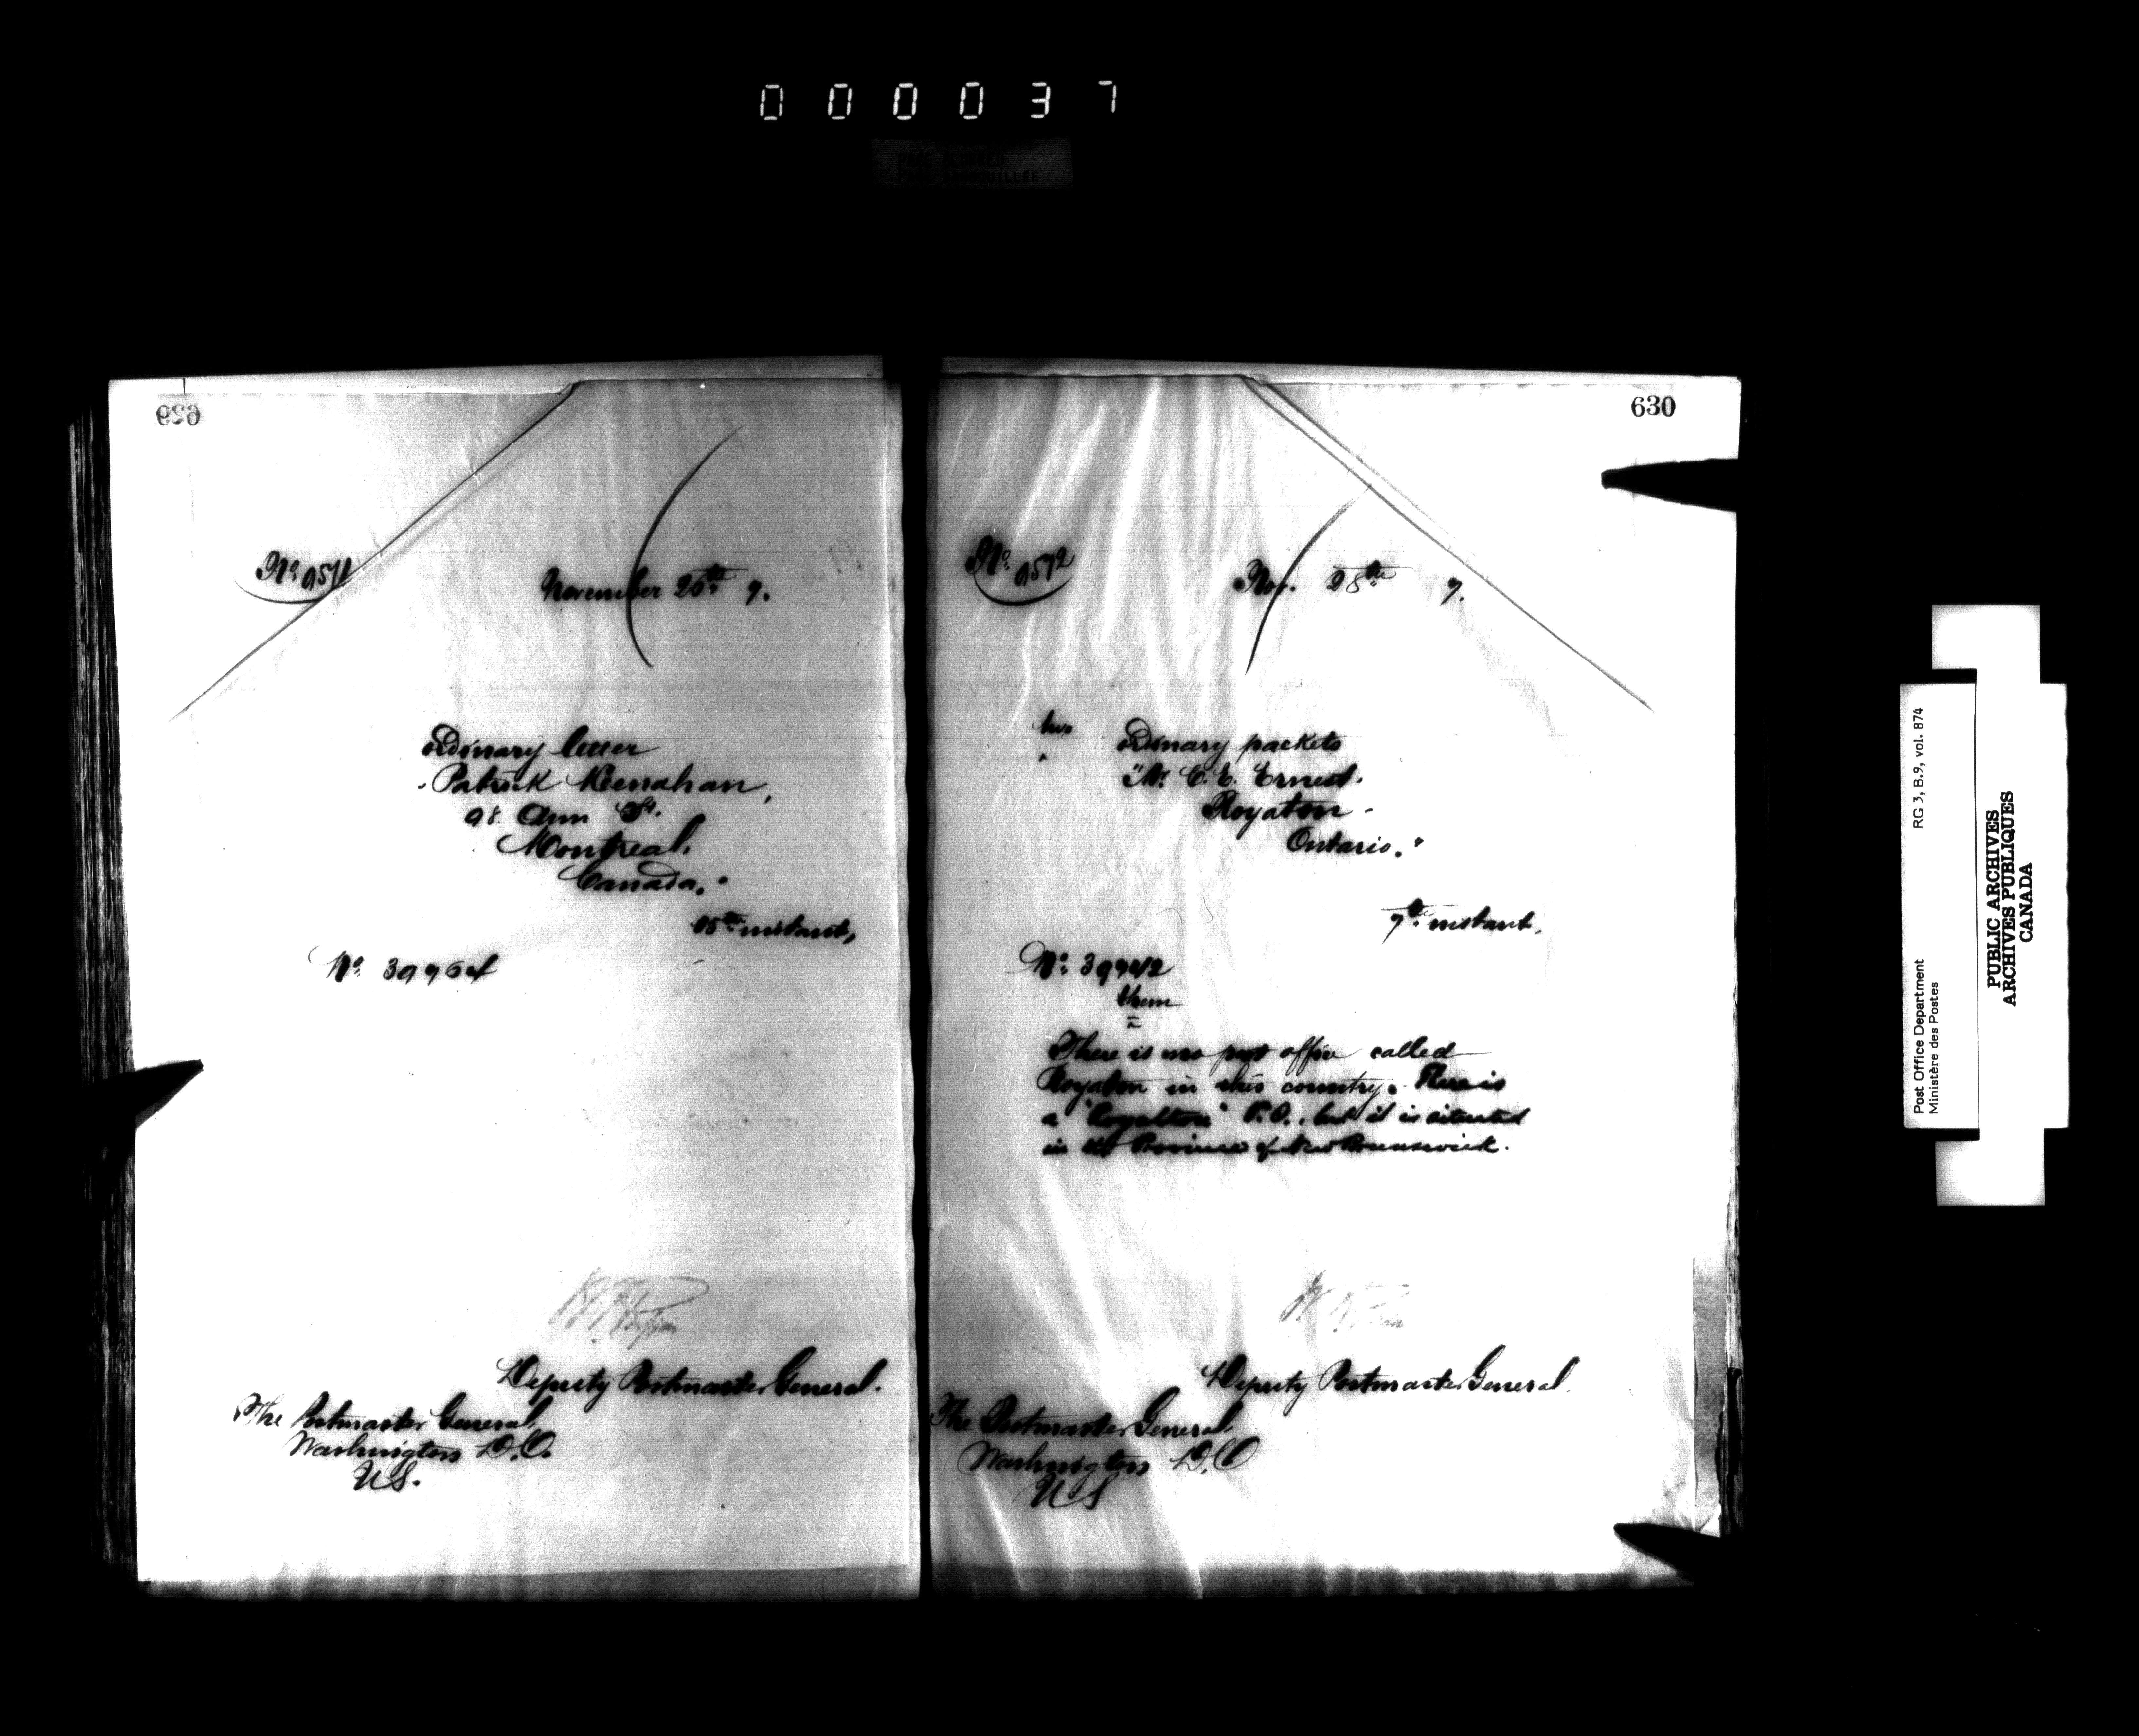 000037
629
No. 9571
November 26th 7.
ordinary letter
"Patrick Keenahan,
98 Ann St.
Montreal,
Canada."
15th instant,
No. 39964
Deputy Postmaster General.
The Postmaster General,
Washington D.C.
U.S.
630
No. 9572
Nov. 28th 7.
two ordinary packets
"Mr. C. E. Ernest.
Royaton -
Ontario."
7th instant,
No. 39942
them
There is no post office called
Royaton in this country. There is
a "Royalton" P.O., but it is situated
in the Province of New Brunswick.
Deputy Postmaster General.
The Postmaster General,
Washington D.C
U S
Post Office Department
Ministère des Postes
RG 3, B.9, vol. 874
PUBLIC ARCHIVES
ARCHIVES PUBLIQUES
CANADA